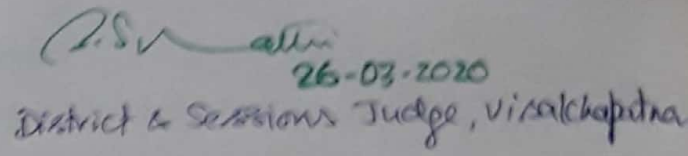 26-03-2020
District & Sessions Judge, Visalchapatna